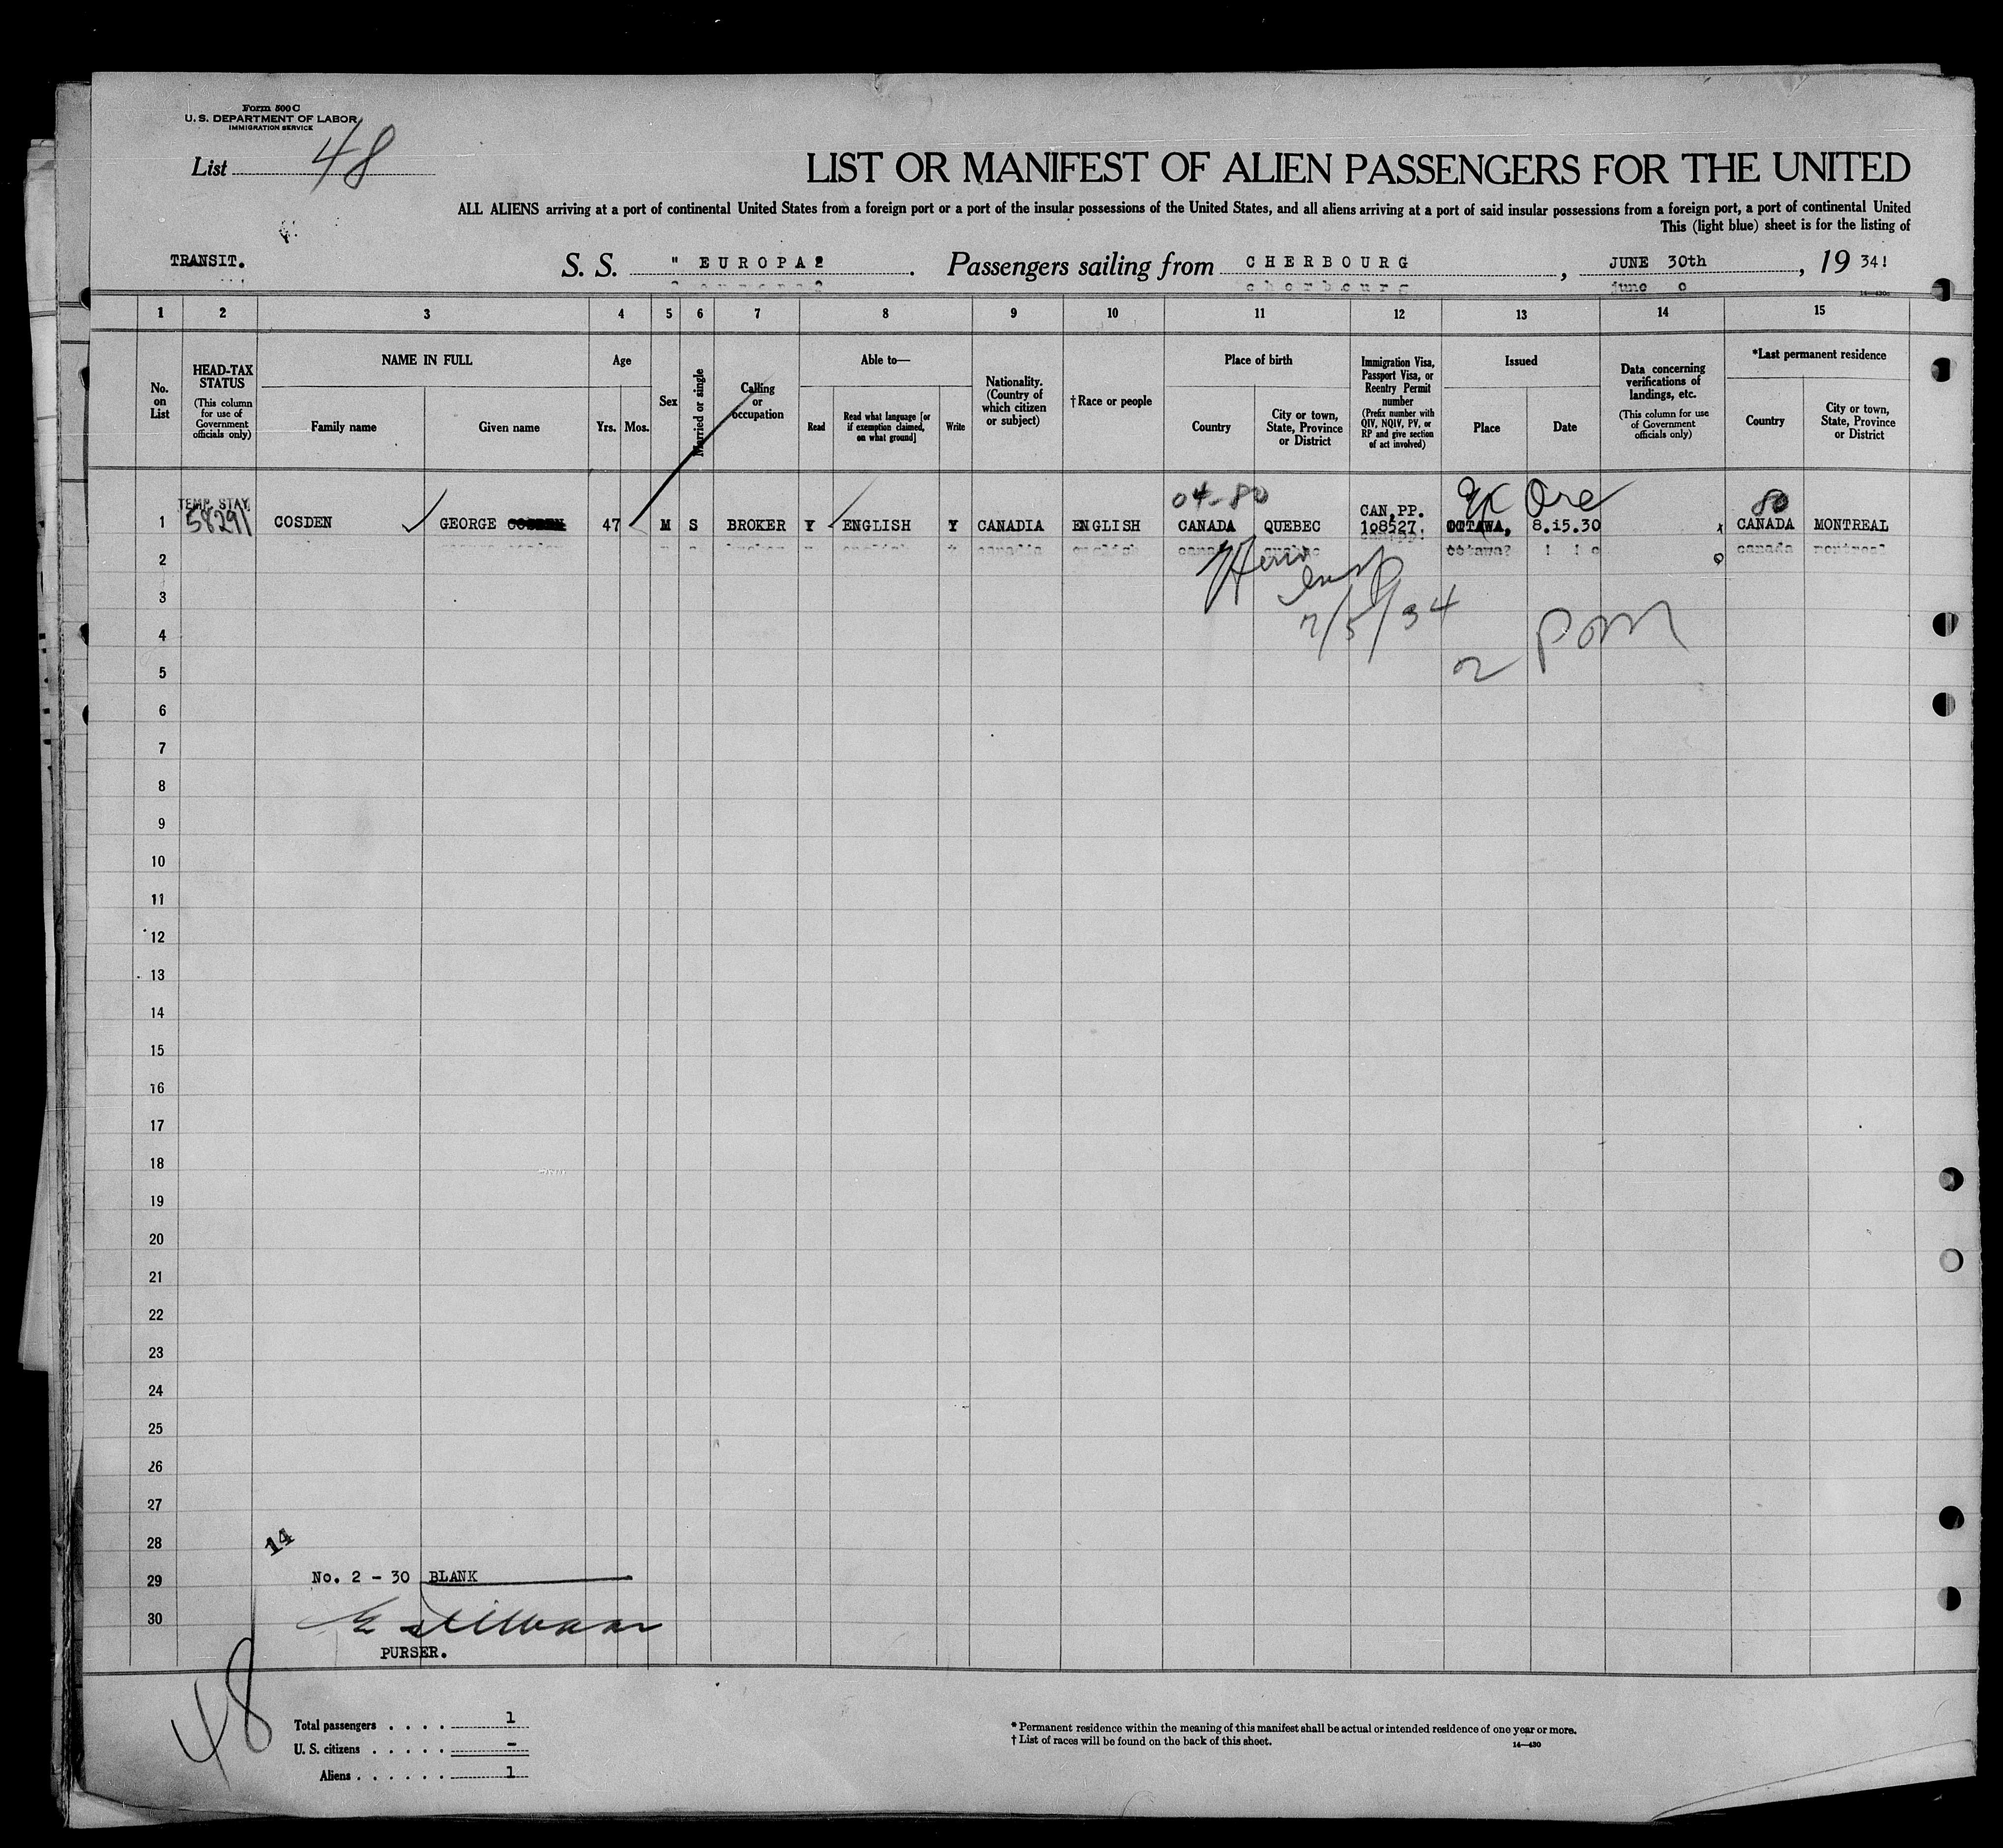 Form 500 C
U. S. DEPARTMENT OF LABOR
IMMIGRATION SERVICE
List 48
LIST OR MANIFEST OF ALIEN PASSENGERS FOR THE UNITED
ALL ALIENS arriving at a port of continental United States from a foreign port or a port of the insular possessions of the United States, and all aliens arriving at a port of said insular possessions from a foreign port, a port of continental United
This (light blue) sheet is for the listing of
TRANSIT. S. S. " EUROPA2 . Passengers sailing from CHERBOURG , JUNE 30th , 19 34!
1 2 3 4 5 6 7 8 9 10 11 12 13 14 15
No. on List
HEAD-TAX STATUS (This column for use of Government officials only)
NAME IN FULL
Family name Given name
Age
Yrs. Mos.
Sex
Married or single
Calling or occupation
Able to—
Read Read what language [or if exemption claimed, on what ground] Write
Nationality. (Country of which citizen or subject)
†Race or people
Place of birth
Country City or town, State, Province or District
Immigration Visa, Passport Visa, or Reentry Permit number (Prefix number with QIV, NQIV, PV, or RP and give section of act involved)
Issued
Place Date
Data concerning verifications of landings, etc. (This column for use of Government officials only)
*Last permanent residence
Country City or town, State, Province or District
TEMP. STAY 04-80 CAN.PP. 80
1 58291 COSDEN GEORGE COSDEN 47 M S BROKER Y ENGLISH Y CANADIA ENGLISH CANADA QUEBEC 108527. OTTAWA, 8.15.30 x CANADA MONTREAL
2
7/5/34
3
4
2 pom
5
6
7
8
9
10
11
12
13
14
15
16
17
18
19
20
21
22
23
24
25
26
27
28 14
29 No. 2 - 30 BLANK
30
PURSER.
48
Total passengers . . . . 1
U. S. citizens . . . . . -
Aliens . . . . . . 1
* Permanent residence within the meaning of this manifest shall be actual or intended residence of one year or more.
† List of races will be found on the back of this sheet.
14—430